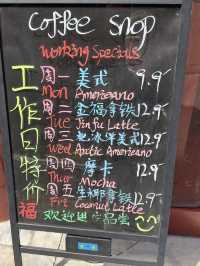 coffee shop
Working Specials
工作日特价
周一 美式 9.9
Mon Americano
周二 金福拿铁 12.9
Tue Jinfu Latte
周三 冰洋美式 12.9
Wed Arctic Americano
周四 摩卡 12.9
Thur Mocha
周五 生椰拿铁 12.9
Fri Coconut Latte
福 欢迎进店品尝